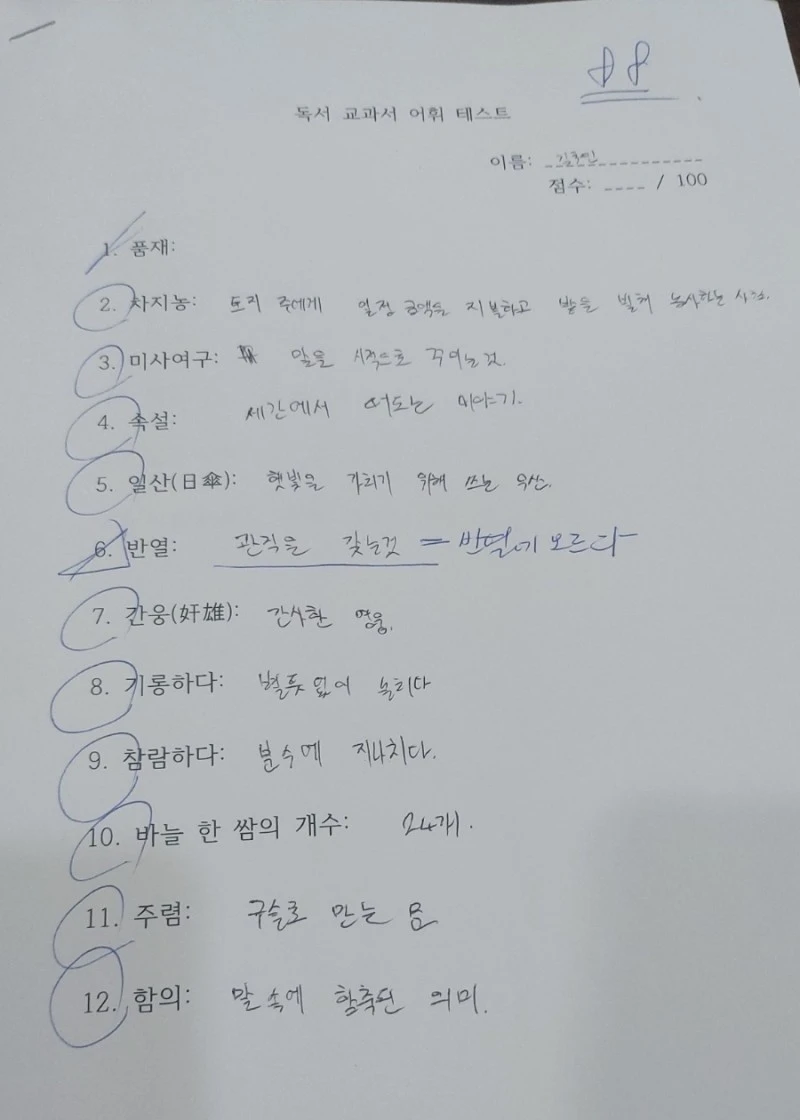 88
독서 교과서 어휘 테스트
이름:
점수: ---- / 100
1. 품재:
2. 차지농: 토지 주에게 일정 금액을 지불하고 밭을 빌려 농사하는 사람.
3. 미사여구: 말을 시적으로 꾸미는것.
4. 속설: 세간에서 떠도는 이야기.
5. 일산(日傘): 햇빛을 가리기 위해 쓰는 우산.
6. 반열: 관직을 갖는것 = 반열에 오르다
7. 간웅(奸雄): 간사한 영웅.
8. 기롱하다: 놀리다
9. 참람하다: 분수에 지나치다.
10. 바늘 한 쌈의 개수: 24개.
11. 주렴: 구슬로 만든 발
12. 함의: 말 속에 함축된 의미.